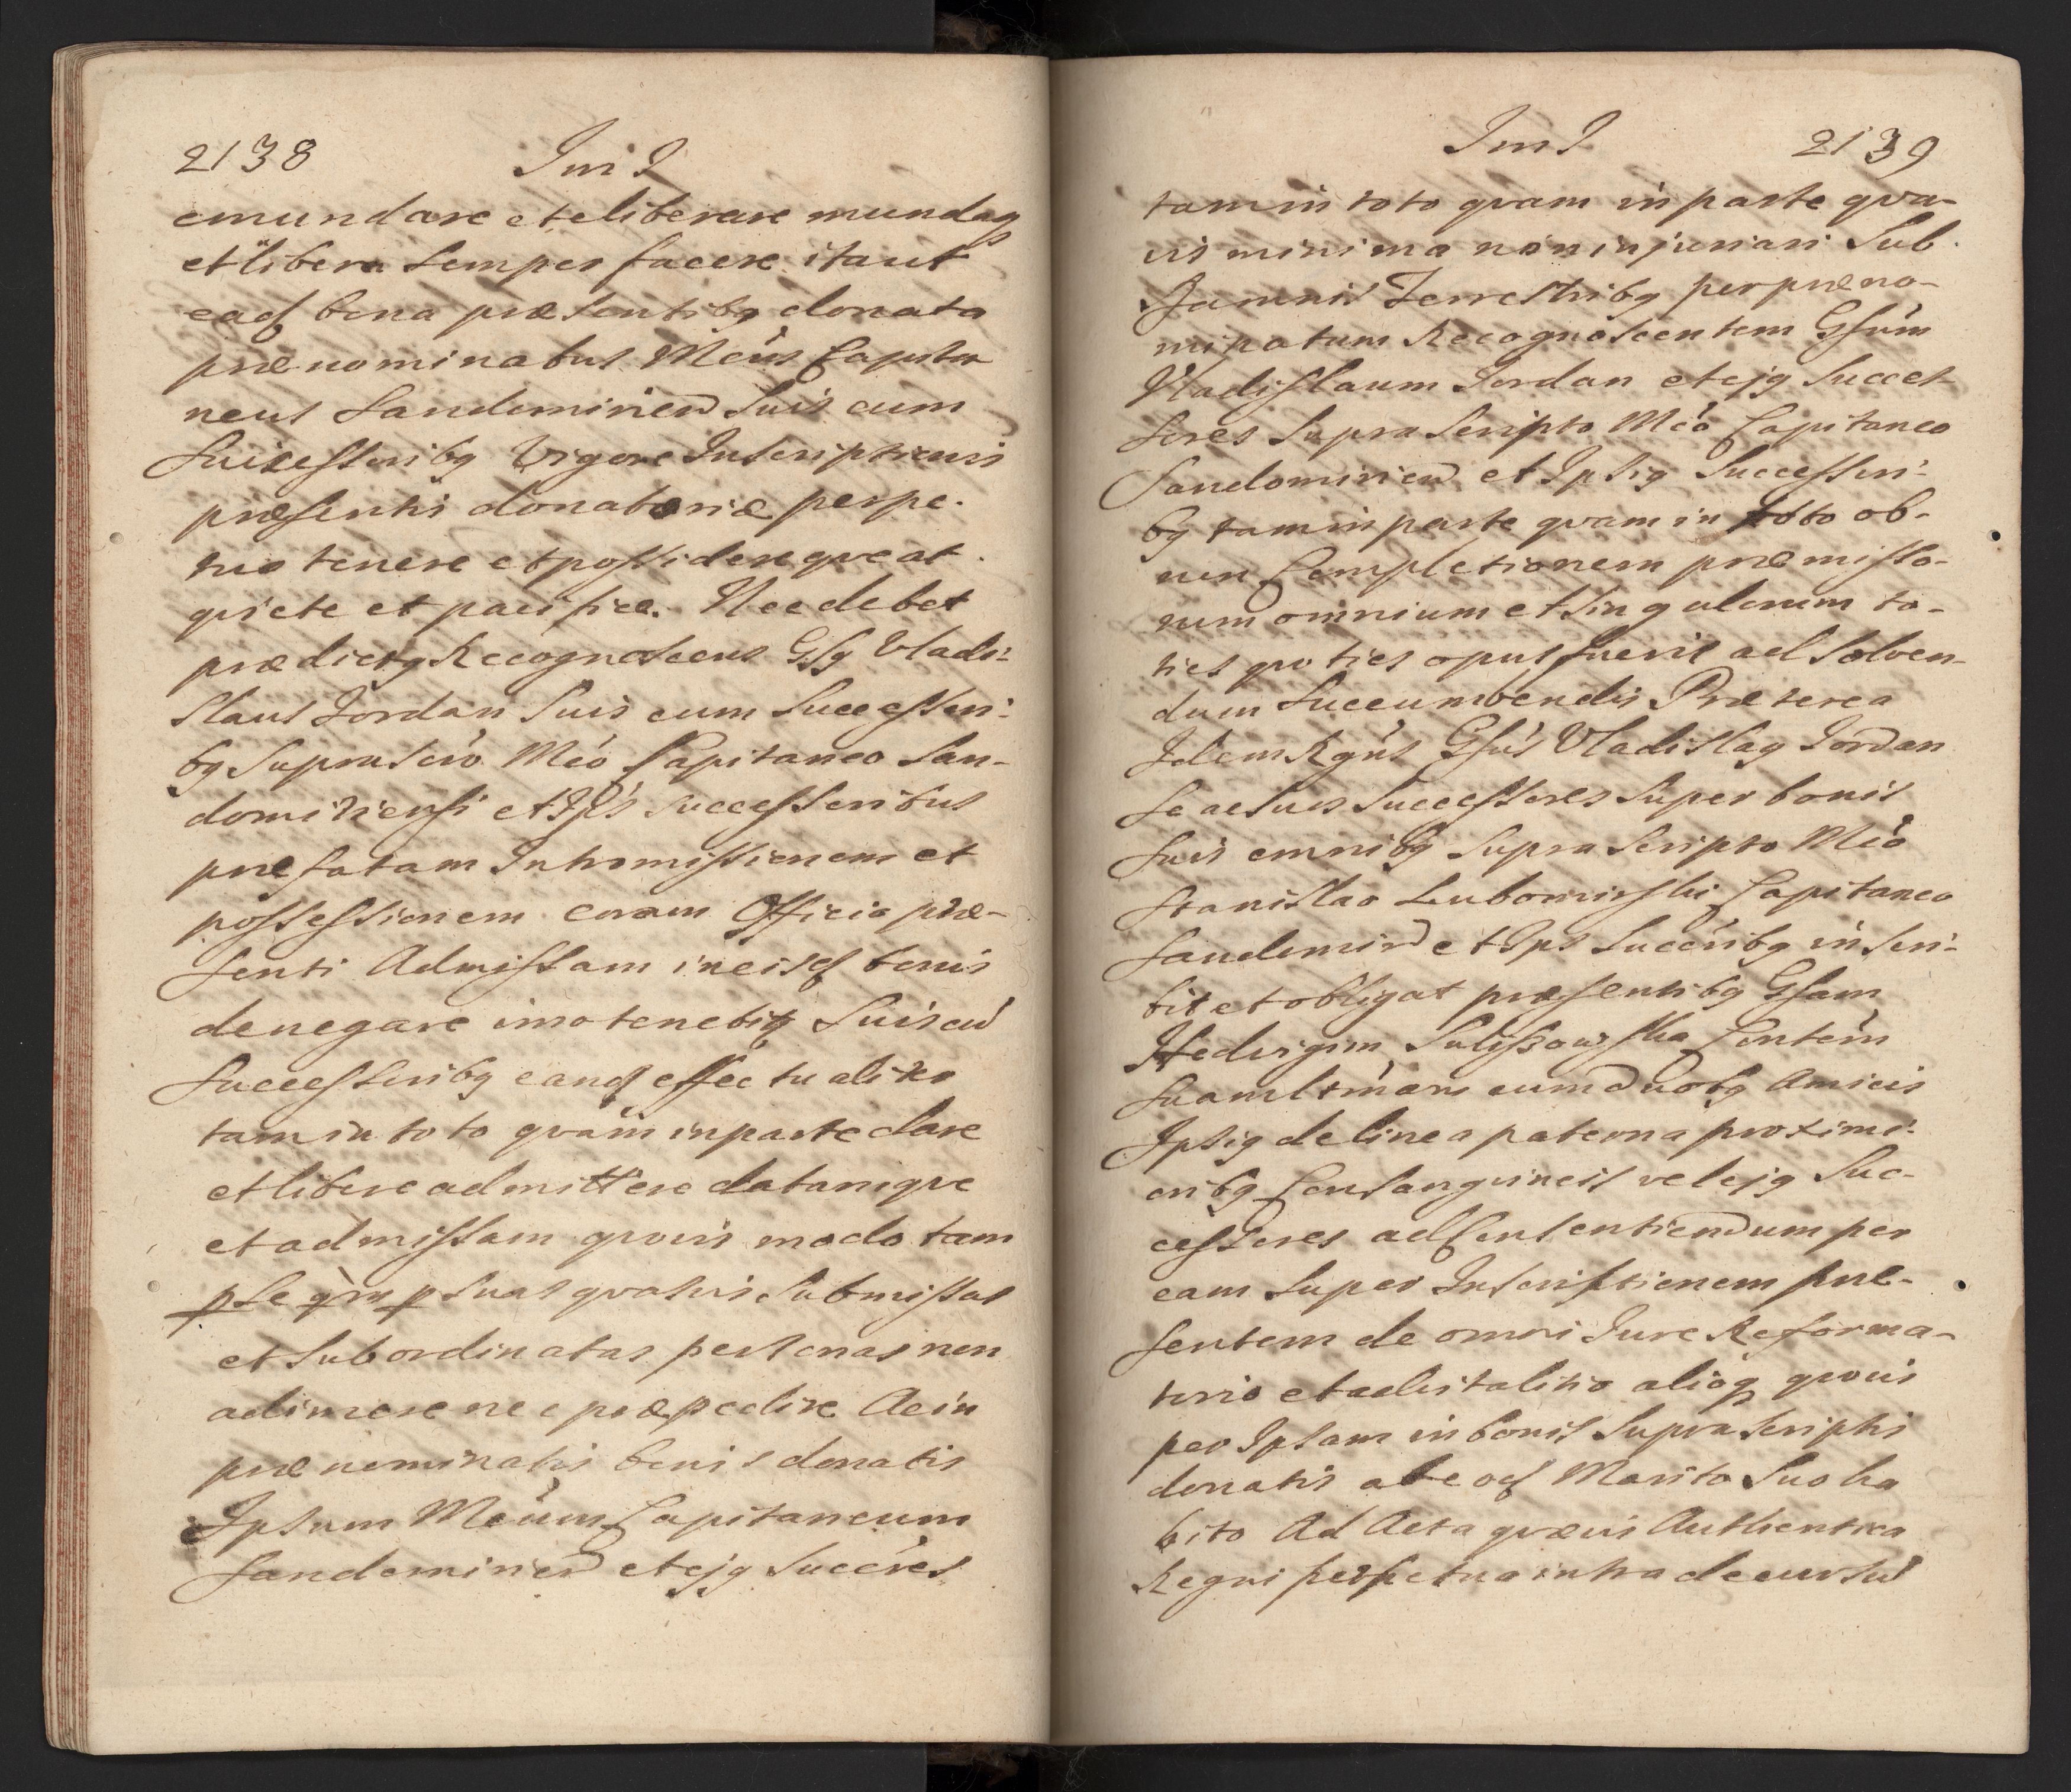 2138 Im I
emundare et eliberare mundaq
et libera Semper facere itaut
eadq bona præsentibq donata
prænominatus Mcus Capita
neus Sandomirien Suis cum
Successoribq Vigore Inscriptionis
præsentis donatoriæ perpe-
tuo tenere et possidere queat
quiete et pacifice. Nec debet
prædictq Recognoscens Gsq Vladi-
slaus Jordan Suis cum Successori-
bq Suprascto Mco Capitaneo San-
domiriensi et Ips Successoribus
præfatam Intromissionem et
possessionem coram Officio præ-
senti Admissam in eisdq bonis
denegare imo tenebitq Suis cu
Successoribq eandq effectualiter
tam in toto qvam in parte dare
et libere admittere datamqve
et admissam qvovis modo tam
p Se qm p Suas qvasvis Submissas
et Subordinatas personas non
adimere nec præpedire Ac in
prænominatis bonis donatis
Ipsum Mcum Capitaneum
Sandomirien et ejq Succres
Im I 2139
tam in toto qvam in parte qva-
vis minima non injuriari Sub
Damnis Terrestribq per præno-
minatum Recognoscentem Gsum
Vladislaum Jordan et ejq Succes-
sores Supra Scripto Mco Capitaneo
Sandomirien et Ipsiq Successori-
bq tam in parte qvam in toto ob
non Completionem præmisso-
rum omnium et Singulorum to-
ties qvoties opus fuerit ad Solven-
dum Succumbendis Præterea
Idem Rgns Gsus Vladislaq Jordan
Se ac Suos Successores Super bonis
Suis omnibq Supra Scripto Mco
Stanislao Lubomirski Capitaneo
Sandomir et Ips Succribq inscri-
bit et obligat præsentibq Gsam
Hedvigim Sulissowska Contem
Suam Ltmam cum duobq Amicis
Ipsiq de linea paterna proximi-
oribq Consangvineis vel ejq Suc-
cessores ad Consentiendum per
eam Super Inscriptionem præ-
sentem de omni Jure Reforma-
torio et advitalitio alioq qvovis
per Ipsam in bonis Supra Scriptis
donatis ab eodq Marito Suo ha
bito Ad Acta qvævis Authentica
Regni perpetua intra decursu